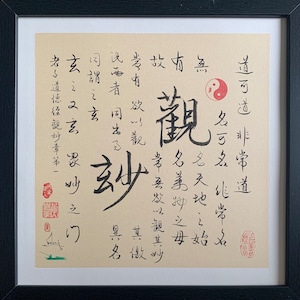 道可道 非常道
名可名 非常名
無 名天地之始
有 名萬物之母
故 常無欲以觀其妙
常有欲以觀 其徼
此两者 同出而 異名
同謂之玄
玄之又玄 眾妙之门
老子道德經觀妙章第一
觀玅